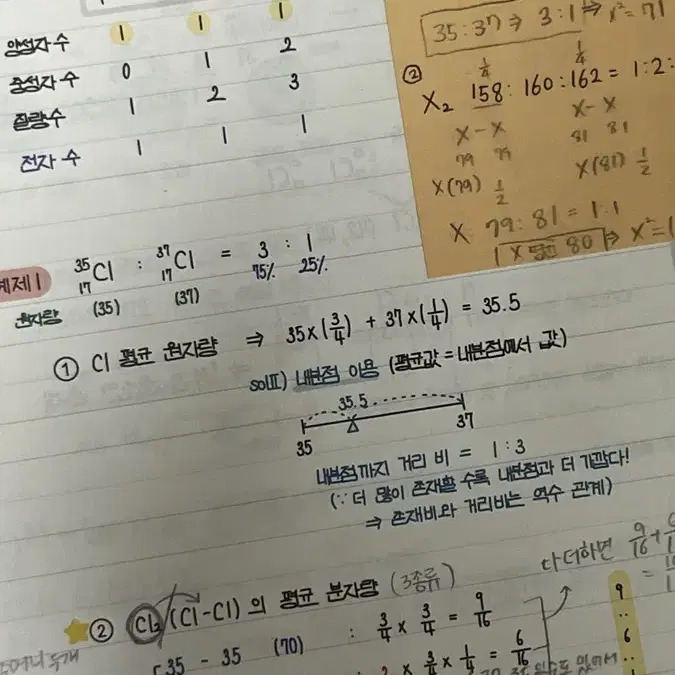 양성자 수 1 1 1
중성자 수 0 1 2
질량수 1 2 3
전자 수 1 1 1
35 : 37 ⇒ 3 : 1 ⇒ x² = 71
②
1/4 1/4
X₂ 158 : 160 : 162 = 1 : 2 :
X - X X - X
79 79 81 81
X(79) 1/2 X(81) 1/2
X 79 : 81 = 1 : 1
1 X 평균 80 ⇒ X² = 1
예제 1 ³⁵₁₇Cl : ³⁷₁₇Cl = 3 : 1
75% 25%
원자량 (35) (37)
① Cl 평균 원자량 ⇒ 35×(3/4) + 37×(1/4) = 35.5
sol Ⅱ) 내분점 이용 (평균값 = 내분점에서 값)
35.5
35 37
내분점까지 거리 비 = 1 : 3
(∵ 더 많이 존재할 수록 내분점과 더 가깝다!
⇒ 존재비와 거리비는 역수 관계)
다 더하면 9/16 +
② Cl₂ (Cl-Cl) 의 평균 분자량 (3종류)
35 - 35 (70) : 3/4 × 3/4 = 9/16
2 × 3/4 × 1/4 = 6/16
9
:
6
: